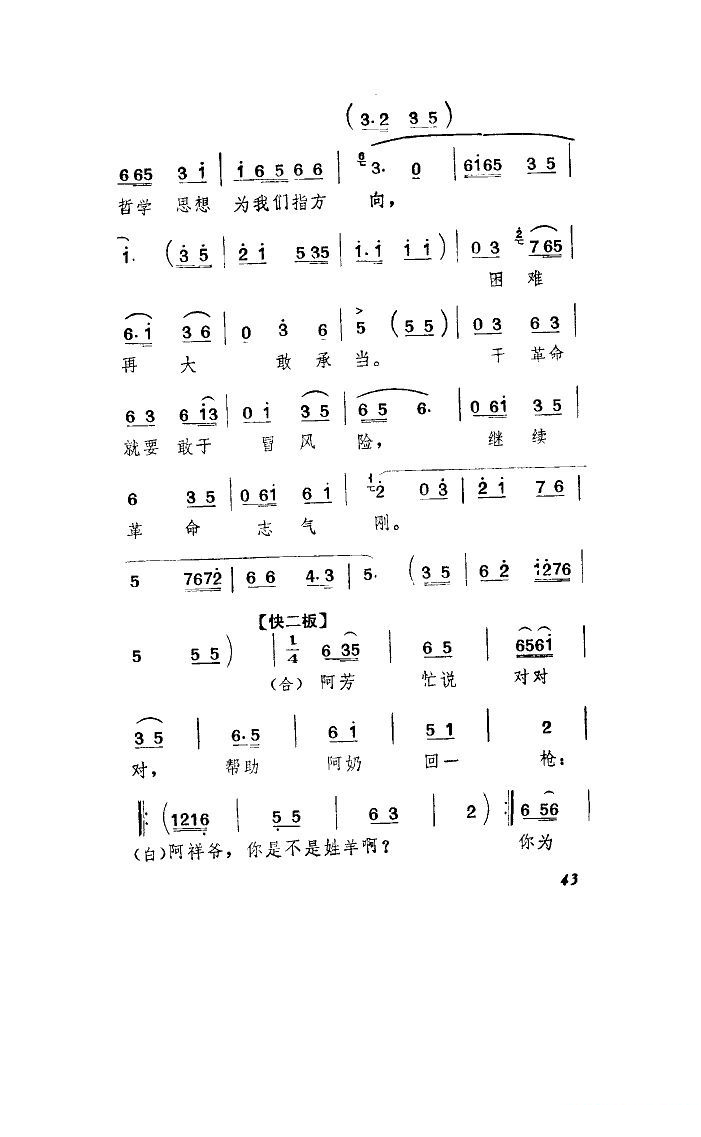 (3·2 3 5)
6 65 3 i̇ | i̇ 6 5 6 6 | 3· 0 | 6i̇65 3 5 |
哲学 思想 为我们指方 向，
i̇· (3̇ 5̇ | 2̇ i̇ 5 35 | i̇·i̇ i̇ i̇) | 0 3 7 65 |
困 难
6·i̇ 3 6 | 0 3̇ 6 | 5 (5 5) | 0 3 6 3 |
再 大 敢 承 当。 干 革命
6 3 6 i̇3 | 0 i̇ 3 5 | 6 5 6· | 0 6i̇ 3 5 |
就要 敢于 冒 风 险， 继 续
6 3 5 | 0 6i̇ 6 i̇ | 2̇ 0 3̇ | 2̇ i̇ 7 6 |
革 命 志 气 刚。
5 7672̇ | 6 6 4·3 | 5· (3 5 | 6 2̇ i̇276 |
5 5 5) |
【快二板】
1/4 6 35 | 6 5 | 656i̇ |
(合) 阿芳 忙说 对对
3 5 | 6·5 | 6 i̇ | 5 1 | 2 |
对， 帮助 阿奶 回一 枪：
‖: (1216̣ | 5̣ 5 | 6 3 | 2) :‖ 6 56 |
(白)阿祥爷，你是不是姓羊啊？ 你为
43